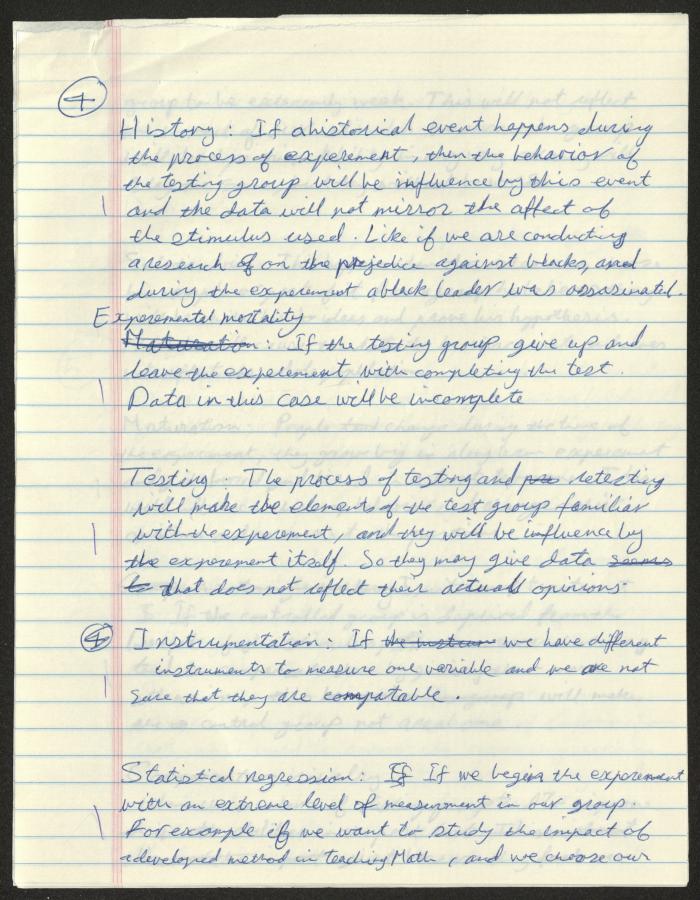 4
History : If a historical event happens during
the process of experement, then the behavior of
the testing group will be influence by this event
and the data will not mirror the affect of
the stimulus used. Like if we are conducting
a research of on the prejedice against blacks, and
during the experement a black leader was assasinated.
Experemental mortality
Maturation : If the testing group give up and
leave the experement with completing the test.
Data in this case will be incomplete
Testing : The process of testing and pre retesting
will make the elements of the test group familiar
with the experement, and they will be influence by
the experement itself. So they may give data seems
to that does not reflect their actuall opinions.
4 Instrumentation : If the instrum we have different
instruments to measure one variable and we are not
sure that they are compatable.
Statistical regression : If If we begin the experement
with an extreme level of measurment in our group.
For example if we want to study the impact of
a developed method in teaching Math, and we choose our